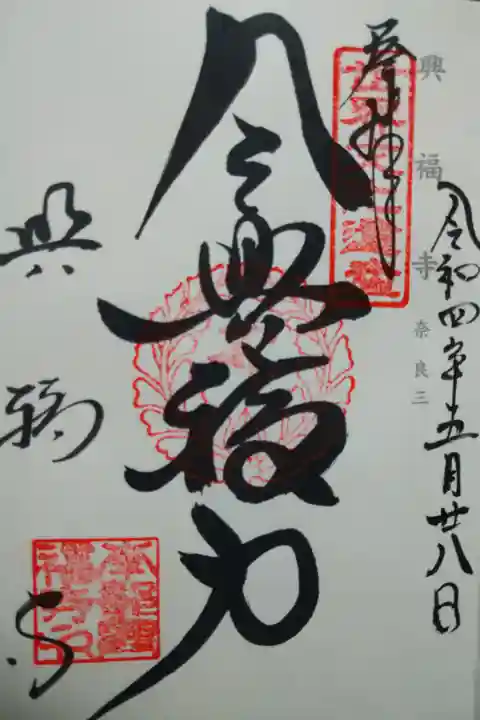 奉拝
興福寺 奈良三
令和四年五月廿八日
令興福力
興福寺